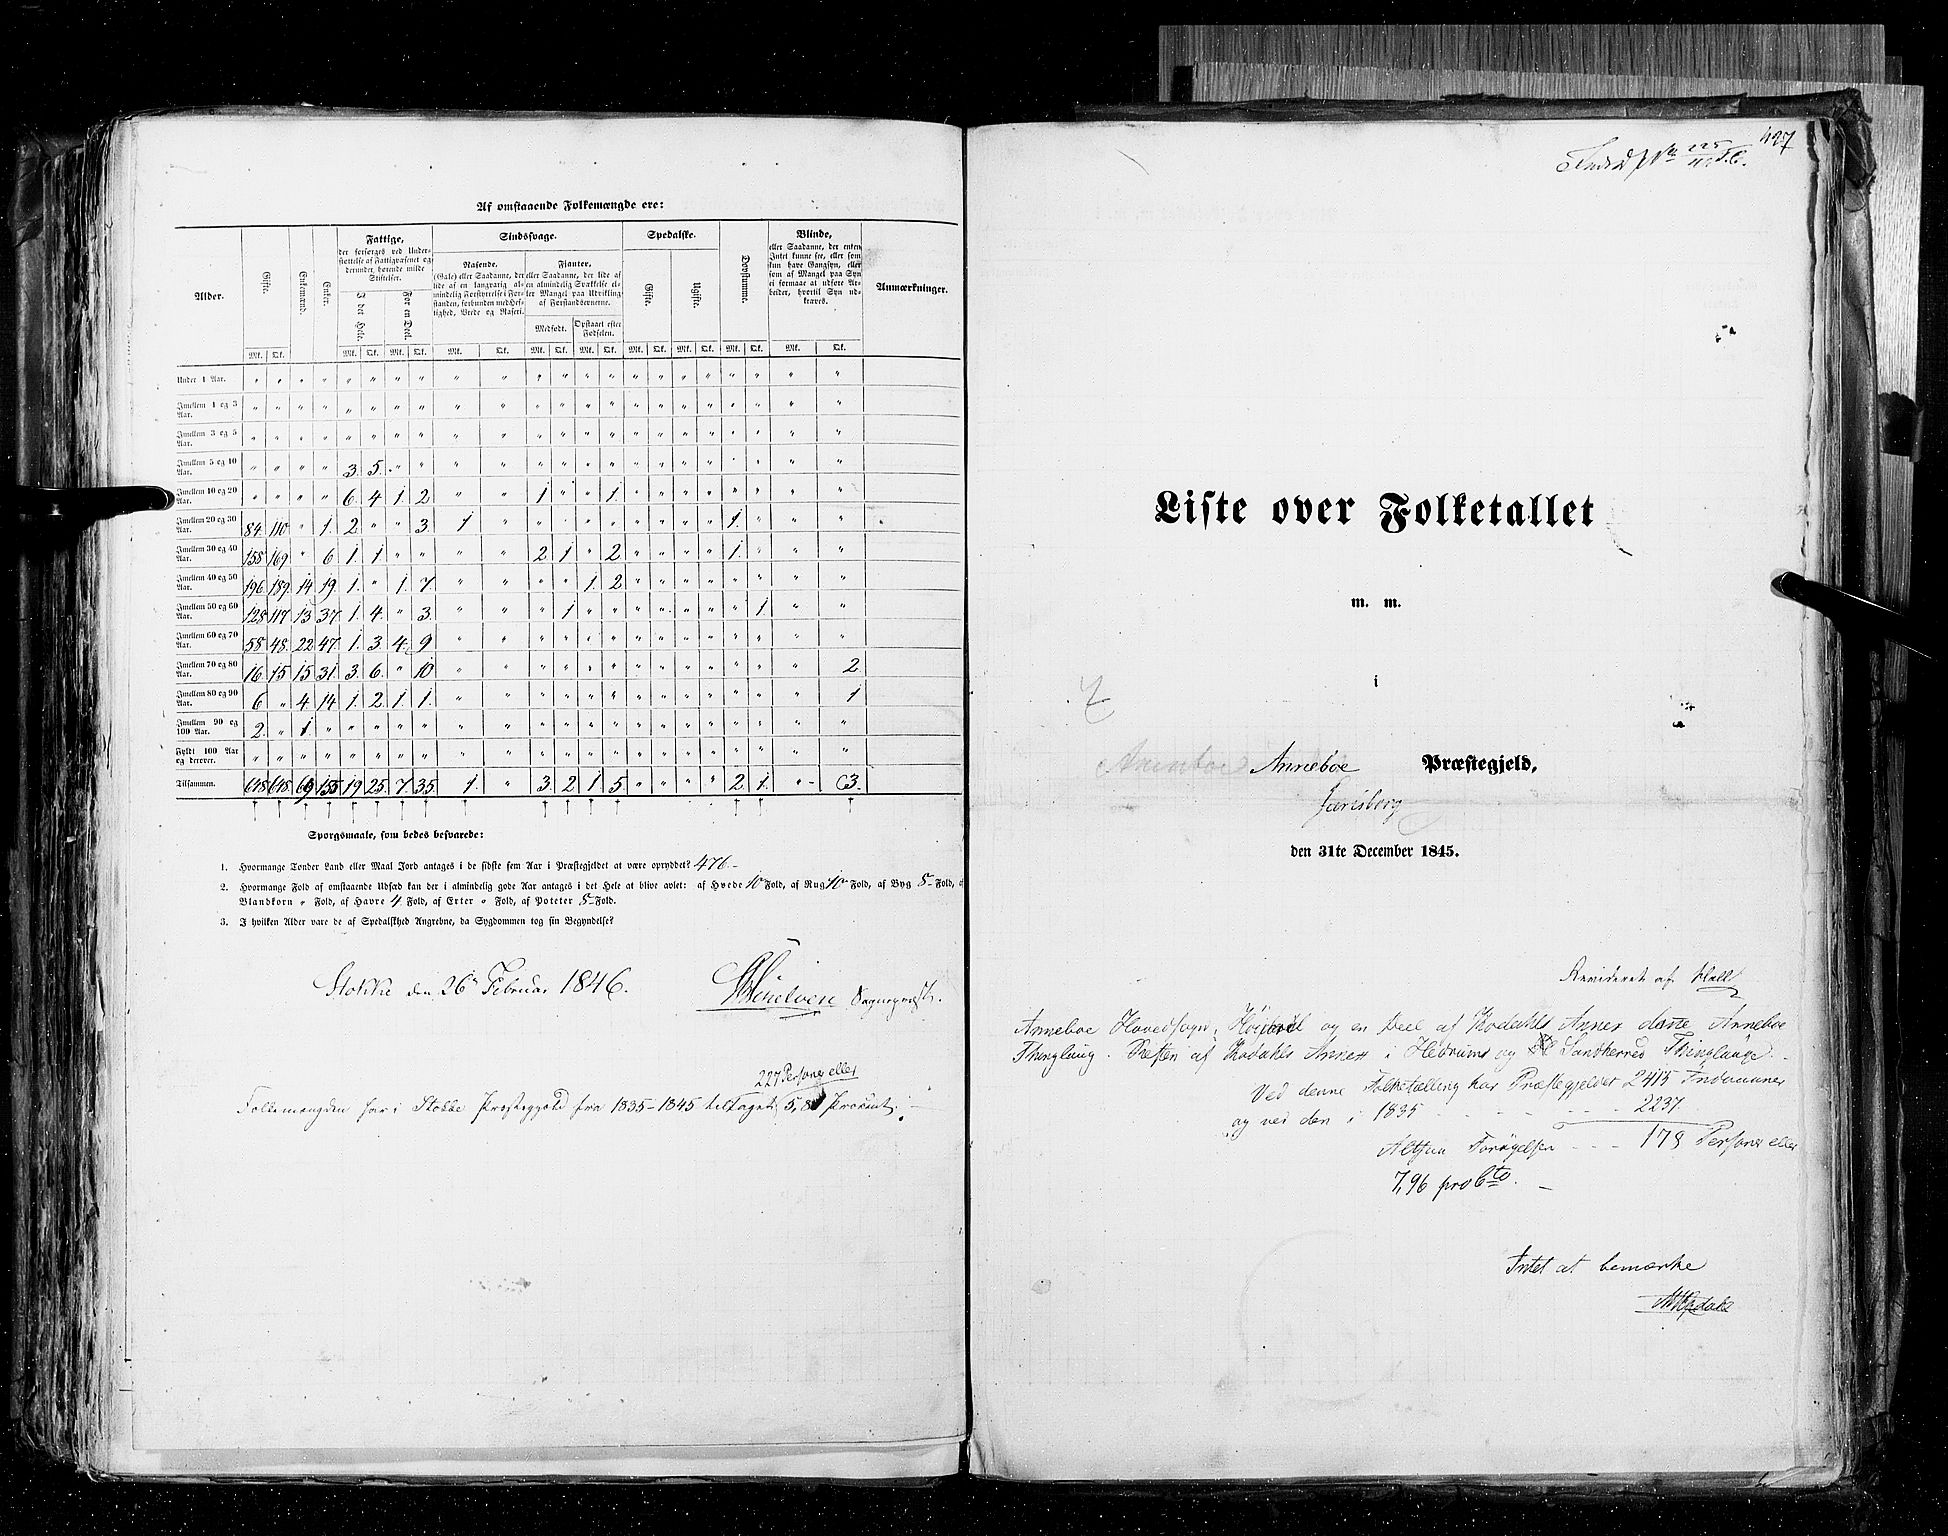 Af omstaaende Folkemængde ere:
Alder. Gifte. Enkemænd. Enker. Fattige, Sindssvage. Spedalske. Døvstumme. Blinde, Anmærkninger.
der forsørges ved Understøttelse af Fattigvæsenet og derunder, hørende milde Stiftelser.
I det Hele. For en Deel.
Rasende.
(Gale) eller Saadanne, der lide af en langvarig almindelig Forstyrrelse i Forstanden, forbunden med Heftighed, Vrede og Raseri.
Fjanter,
eller Saadanne, der lide af en almindelig Svækkelse eller Mangel paa Udvikling af Forstandsevnerne.
Medfødt. Opstaaet efter Fødselen.
Gifte. Ugifte.
eller Saadanne, der enten Intet kunne see, eller som kun have Gangsyn, eller som af Mangel paa Syn ei formaae at udføre Arbeider, hvortil Syn udkræves.
Mk. Qk. Mk. Qk. Mk. Qk. Mk. Qk. Mk. Qk. Mk. Qk. Mk. Qk. Mk. Qk. Mk. Qk. Mk. Qk.
Under 1 Aar. " " " " " " " " " " " " " " " " " " " " " "
Imellem 1 og 3 Aar. " " " " " " " " " " " " " " " " " " " " " "
Imellem 3 og 5 Aar. " " " " " " " " " " " " " " " " " " " " " "
Imellem 5 og 10 Aar. " " " " 3. 5. " " " " " " " " " " " " " " " "
Imellem 10 og 20 Aar. " " " " 6. 4 1. 2 " " 1 " " 1. " " " " " " " "
Imellem 20 og 30 Aar. 84. 110 " 1. 2 " " 3. 1 " " " " " " " " " 1. " " "
Imellem 30 og 40 Aar. 158 169 " 6 1. 1. " " " " 2. 1 " 2 " " " " 1. " " "
Imellem 40 og 50 Aar. 196. 189. 14 19. 1. " 1. 7 " " " " 1. 2 " " " " " " " "
Imellem 50 og 60 Aar. 128 117 13 37. 1. 4. " 3. " " " 1 " " " " " " " 1. " "
Imellem 60 og 70 Aar. 58 48. 22 47. 1. 3. 4. 9 " " " " " " " " " " " " " "
Imellem 70 og 80 Aar. 16. 15 15 31. 3. 6. " 10 " " " " " " " " " " " " " 2
Imellem 80 og 90 Aar. 6 " 4 14 1. 2 1. 1. " " " " " " " " " " " " " 1
Imellem 90 og 100 Aar. 2. " 1. " " " " " " " " " " " " " " " " " " "
Fyldt 100 Aar og derover. " " " " " " " " " " " " " " " " " " " " " "
Tilsammen. 648 648 69 155 19 25. 7. 35. 1. " 3. 2 1 5 " " " " 2 1. " 3.
Spørgsmaale, som bedes besvarede:
1. Hvormange Tønder Land eller Maal Jord antages i de sidste fem Aar i Præstegjeldet at være opryddet? 476
2. Hvormange Fold af omstaaende Udsæd kan der i almindelig gode Aar antages i det Hele at blive avlet: af Hvede 10 Fold, af Rug 10 Fold, af Byg 8 Fold, af
Blandkorn " Fold, af Havre 4 Fold, af Erter " Fold, af Poteter 8 Fold.
3. I hvilken Alder vare de af Spedalskhed Angrebne, da Sygdommen tog sin Begyndelse?
Stokke den 26de Februar 1846.
Sognepræst.
227 Personer eller
Folkemængden har i Stokke Præstegjeld fra 1835-1845 tiltaget 5,8 Procent.
427
Liste over Folketallet
m. m.
i
Anneboe Anneboe Præstegjeld,
Jarlsberg
den 31te December 1845.
Revideret af Hall
Anneboe Hovedsogn, og en Deel af Kodahls Annex danne Anneboe
Thinglaug. Resten af Kodahls Annex i Hedrums og Sandherred Thinglauge.
Ved denne Folketælling har Præstegjeldet 2415 Indvaaner
og ved den i 1835 - - - - - 2237
Altsaa Forøgelsen - - - 178 Personer eller
7,96 pro Cto. -
Intet at bemærke